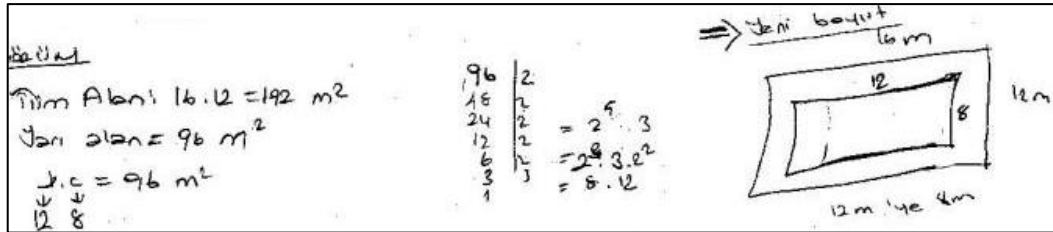 Çözüm
Tüm Alanı 16.12 = 192 m²
Yarı alan = 96 m²
k.c = 96 m²
12 8
96 | 2
48 | 2
24 | 2 = 2⁵.3
12 | 2
6 | 2 = 2³.3.2²
3 | 3 = 8.12
1
⇒ Yeni boyut
16 m
12
8
12 m
12 m 'ye 8 m